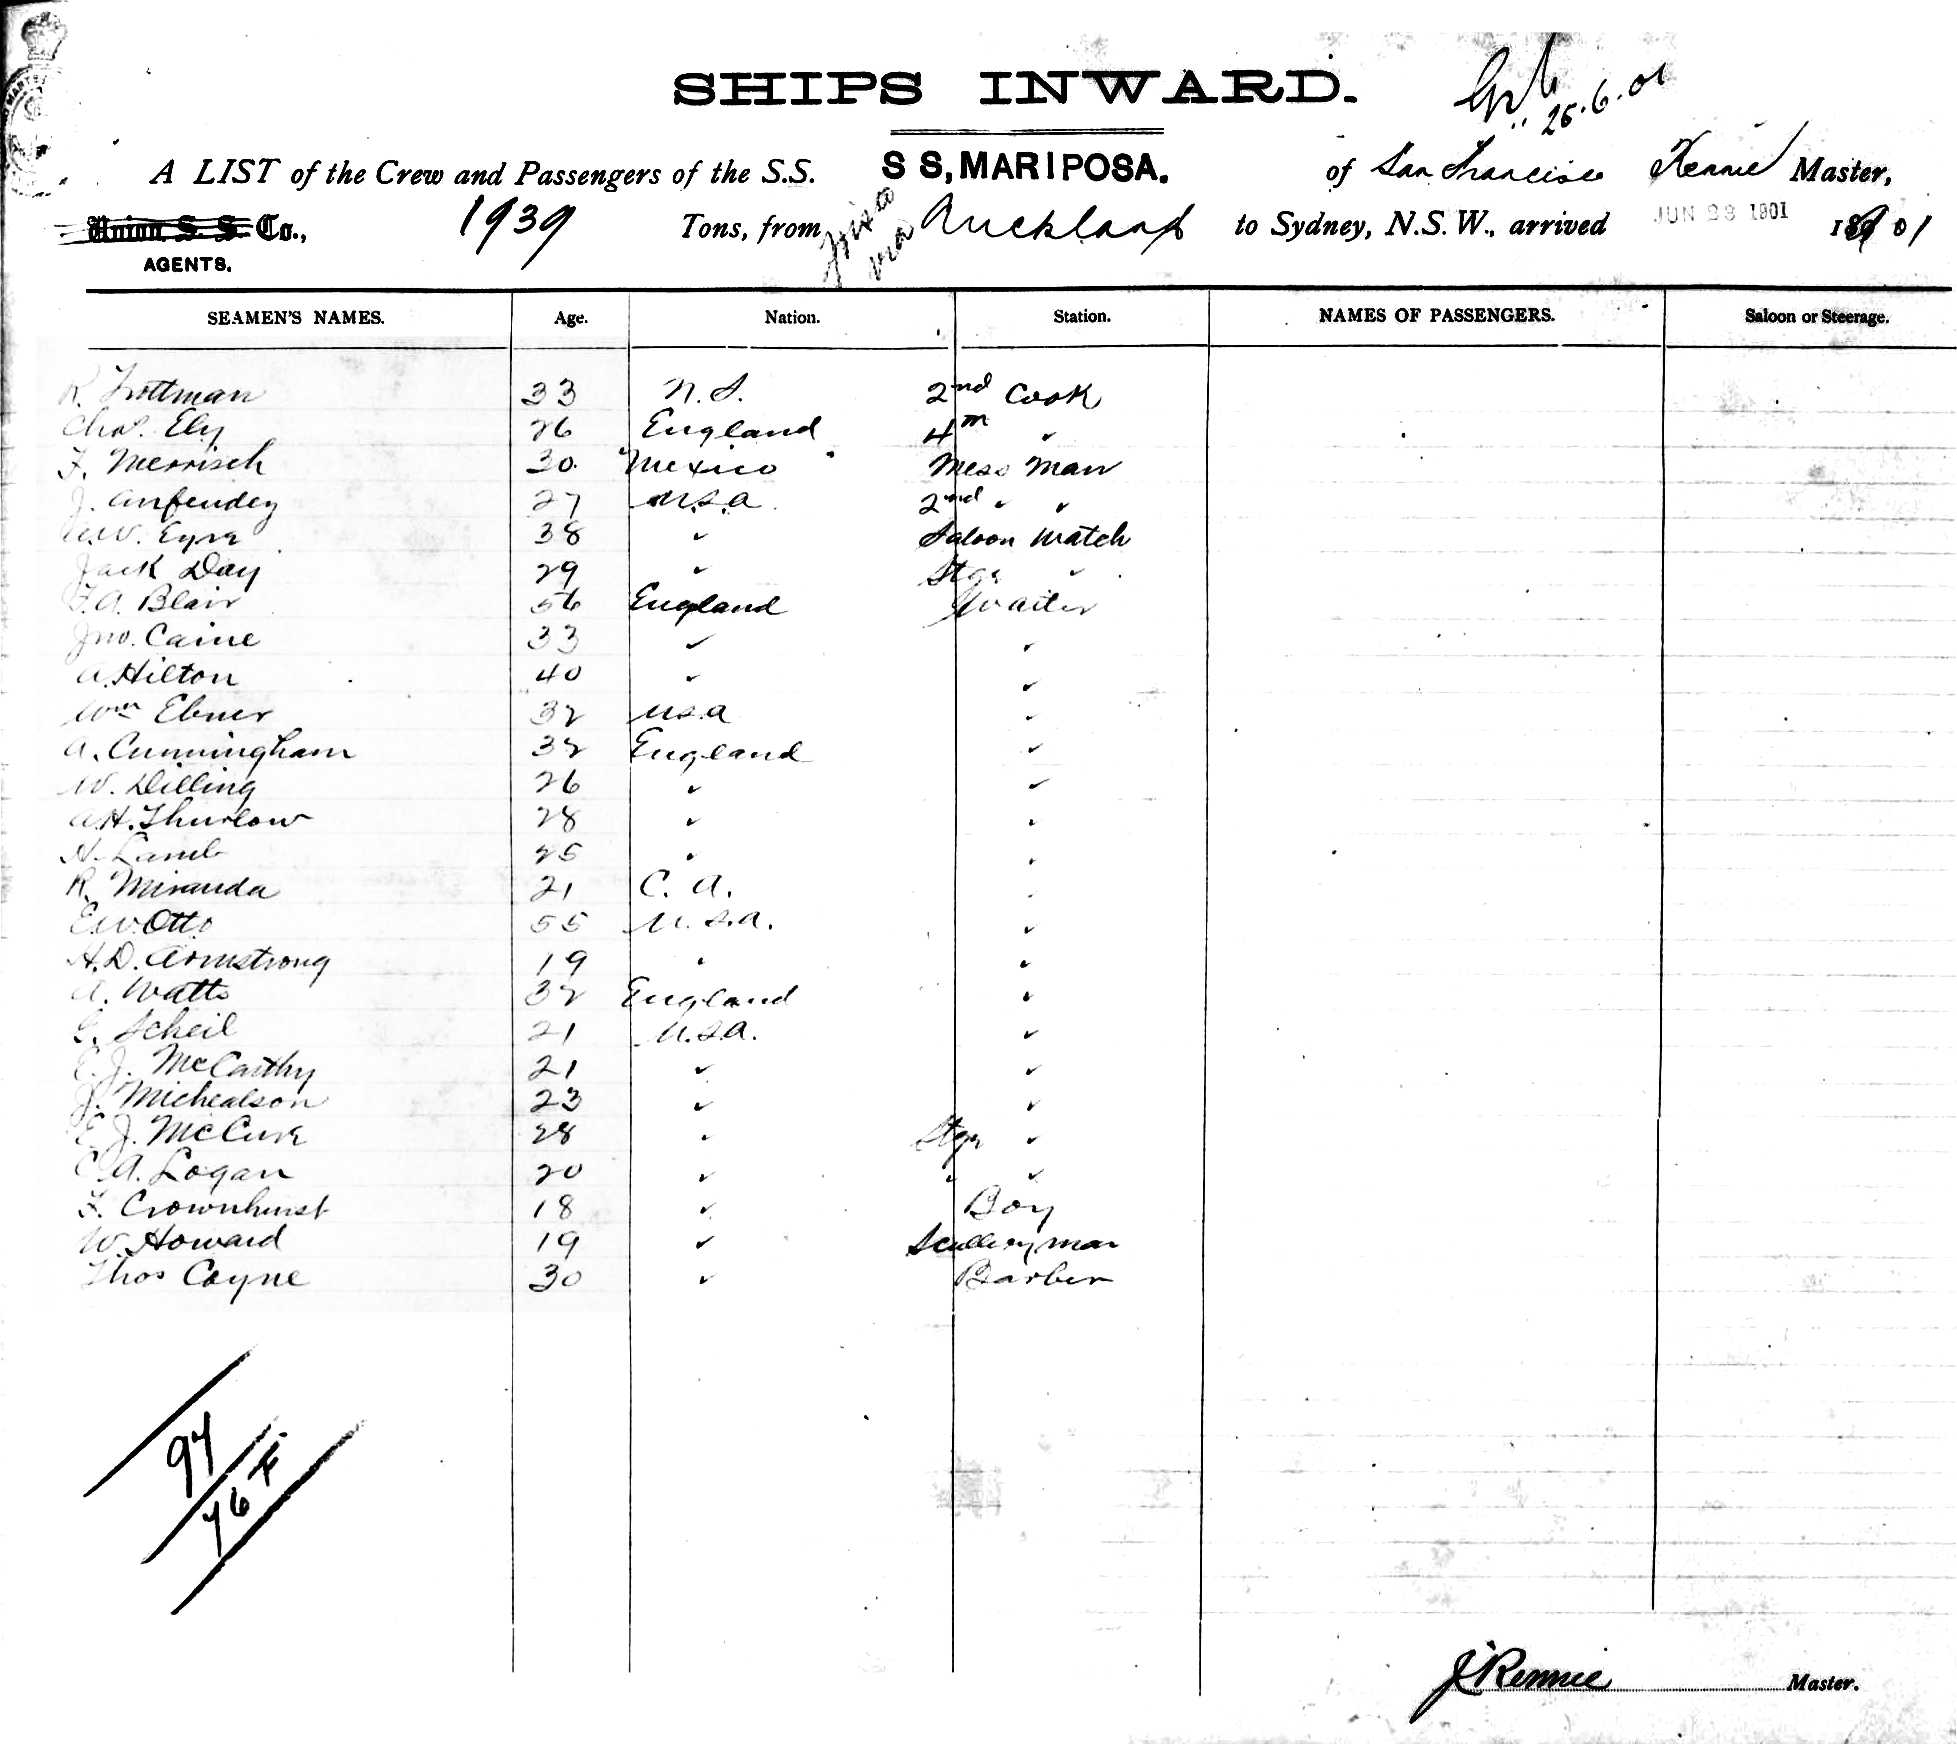 SHIPS INWARD.
26.6.01
A LIST of the Crew and Passengers of the S.S. SS, MARIPOSA. of San Francisco Rennie Master,
Union S. S. Co., 1939 Tons, from Frisco via Auckland to Sydney, N.S.W., arrived JUN 23 1901 18 01
AGENTS.
SEAMEN'S NAMES. Age. Nation. Station. NAMES OF PASSENGERS. Saloon or Steerage.
R. Trottman 33 N.S. 2nd Cook
Chas. Ely 26 England 4th "
F. Merrisch 30 Mexico Mess Man
J. 27 U.S.A. 2nd " "
W. Eyre 38 " Saloon Watch
Jack Day 29 " Stge "
F.A. Blair 56 England Waiter
Jno. Caine 33 " "
A. Hilton 40 " "
Wm Ebner 32 USA "
A. Cunningham 32 England "
W. Dilling 26 " "
A.H. Thurlow 28 " "
H. Lamb 25 " "
R. Miranda 21 C. A. "
E.W. Otto 55 U.S.A. "
H.D. Armstrong 19 " "
A. Watts 32 England "
Scheil 21 U.S.A. "
E.J. McCarthy 21 " "
J. Michealson 23 " "
E.J. McCure 28 " Stge "
C.A. Logan 20 " " "
F. Crownhurst 18 " Boy
W. Howard 19 " Scullery man
Thos Coyne 30 " Barber
97
76 F
J Rennie Master.